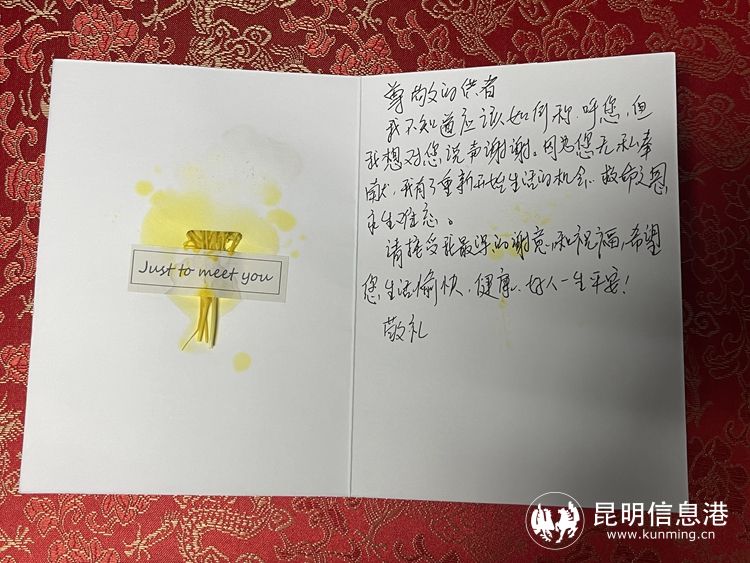 Just to meet you
尊敬的供者
我不知道应该如何称呼您,但
我想对您说声谢谢。因为您无私奉
献,我有了重新开始生活的机会,救命之恩
永生难忘。
请接受我最深的谢意和祝福,希望
您生活愉快,健康,好人一生平安!
敬礼
昆明信息港
www.kunming.cn